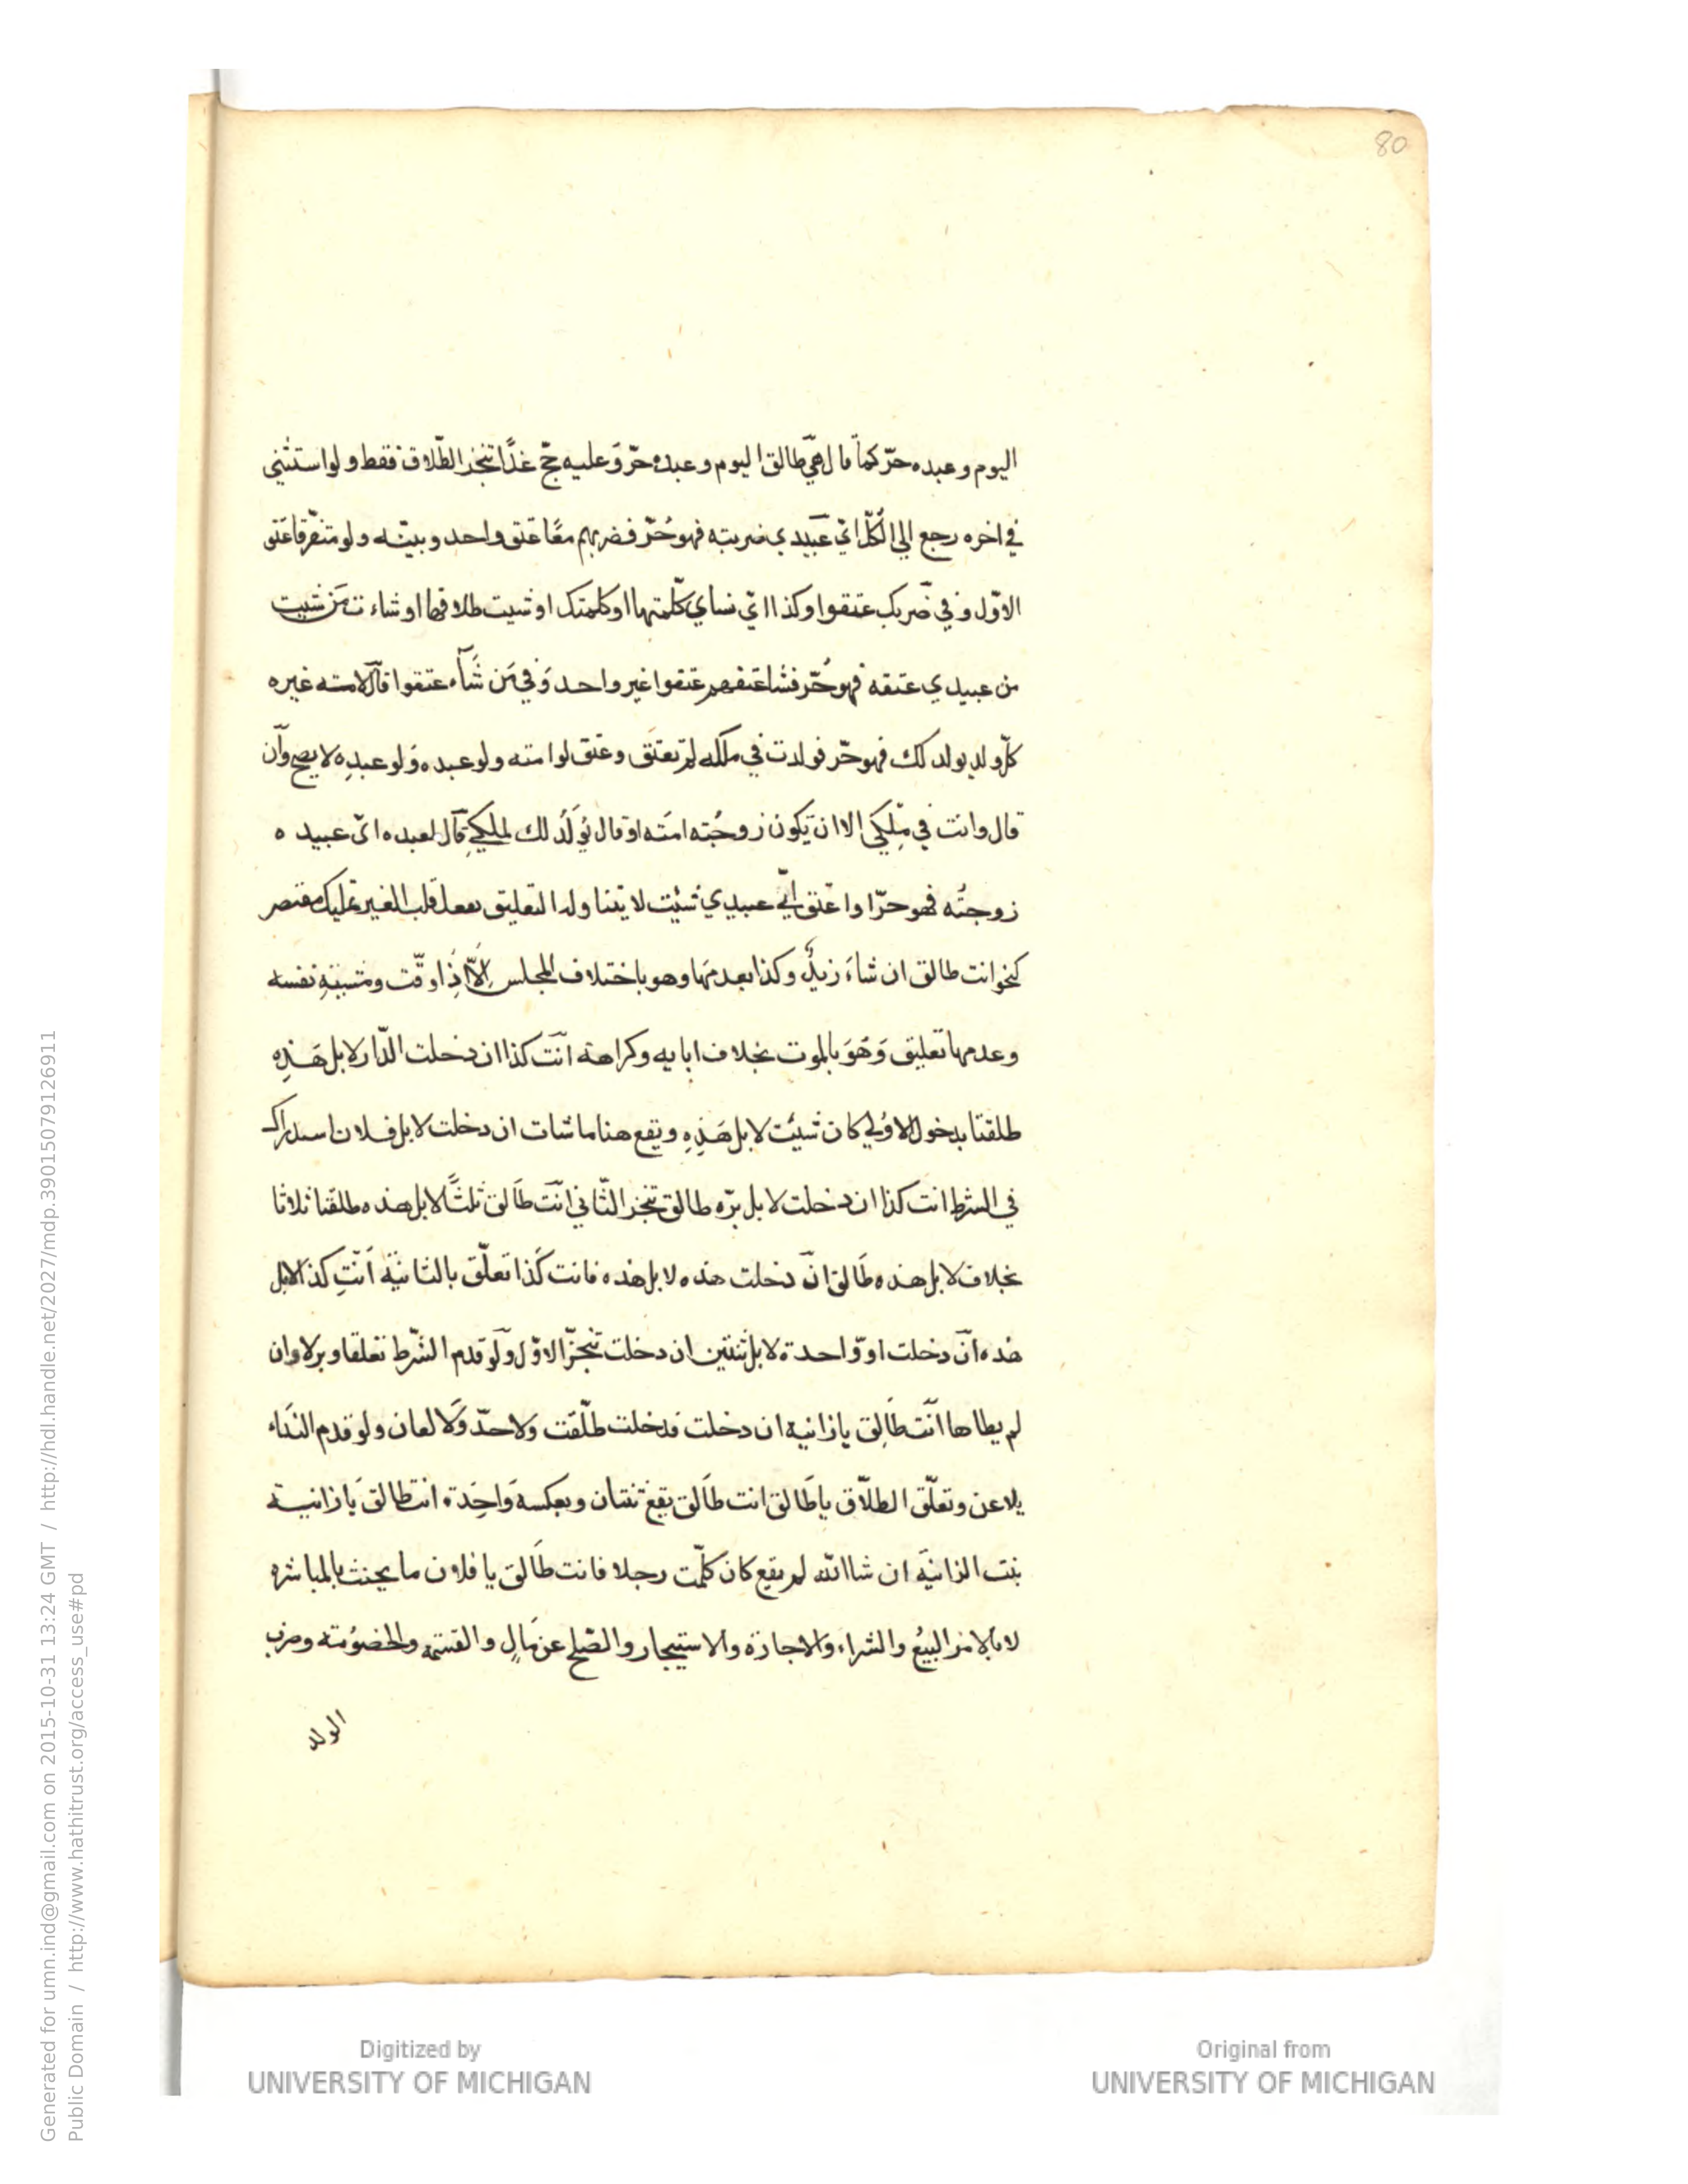 80
اليوم وعبده حرّ كما قال هي طالق اليوم وعبده حرّ وعليه حجّ غدًا تنجز الطّلاق فقط ولو استثني
في اخره رجع الي الكلّ ايّ عبيدي ضربته فهو حُرّ فضربهم معًا عتق واحد وبيّنه ولو متفرقا عتق
الاوّل وفي ضربك عتقوا وكذا ايّ نساي كلّمتها او كلمتك او شيت طلاقها او شاءت مَن شيت
من عبيدي عتقه فهو حُرّ فشا عتقهم عتقوا غير واحد وفي مَن شآء عتقوا قال لامته غيره
كلّ ولد يولد لك فهو حرّ فولدت في ملكه لم تعتق وعتق لو امته ولو عبده ولو عبدِه لا يصح وان
قال وانت في مِلكي الا ان تكون زوجُته امَته او قال يُولَدُ لك لملكي قال لعبده ايّ عبيده
زوجتُه فهو حرّ او اعتق ايّ عبيدي شئت لا يتناوله التعليق بفعل قلب الغير تمليك مقتصر
كنحو انت طالق ان شاءَ زيدٌ وكذا بعدمها وهو باختلاف المجلس الّا اذا وقّت ومشيئةِ نفسه
وعدمها تعليق وَهوَ بالموت بخلاف ابايه وكراهة انت كذا ان دخلت الدّار لا بل هَذِه
طلقتا بدخول الاوُلي كان شيئت لا بل هَذِه ويقع هنا ما شات ان دخلت لا بل فلان استدراك
في الشرط انت كذا ان دخلت لا بل برّه طالق تنجز الثّاني انت طَالق ثلثًا لا بل هذه طلقتا ثلاثا
بخلاف لا بل هذه طَالق ان دخلت هذه لا بل هذه فانت كَذا تعلّق بالثانيَة اَنتِ كذا لا بل
هذه ان دخلت او وّاحدة لا بل ثنتين ان دخلت تنجزّ الاوّل ولو قدم الشّرط تعلقا وبرلا وان
لم يطاها انت طَالِق يا زانية ان دخلت فدخلت طلّقت ولا حدّ وَلا لعان ولو قدم النَداء
يلاعن وتعلّق الطلّاق يا طَالق انت طَالق يقع ثنتان وبعكسه وَاحِدة انت طالق يَا زانية
بنت الزانيَة ان شا الله لم يقع كان كلّمت رجلا فانت طَالق يا فلان ما يحنث بالمباشرة
لا بالامر البيعُ والشراء والاجازة والاستيجار والصّلح عن مَالٍ والقسَمة والخصوُمته وضرب
الولد
Generated for umn.ind@gmail.com on 2015-10-31 13:24 GMT / http://hdl.handle.net/2027/mdp.39015079126911
Public Domain / http://www.hathitrust.org/access_use#pd
Digitized by
UNIVERSITY OF MICHIGAN
Original from
UNIVERSITY OF MICHIGAN